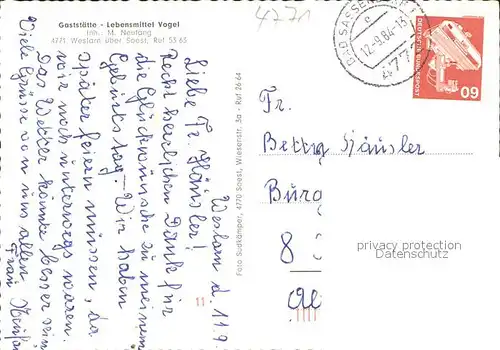 4771
Gaststätte - Lebensmittel Vogel
Inh. M. Neufang
4771 Weslarn über Soest, Ruf 53 65
BAD SASSENDORF 1
e
12-9.84-13
4771
DEUTSCHE BUNDESPOST
60
Weslarn d. 11.9.
Liebe Fr. Häusler!
Recht herzlichen Dank für
die Glückwünsche zu meinem
Geburtstag - Wir haben
später feiern müssen, da
wir noch unterwegs waren.
Das Wetter könnte besser sein
Viele Grüsse von uns allen
Frau
Foto Sudkämper, 4770 Soest, Wiesenstr. 3a - Ruf 26 64
Fr.
Burg
8
privacy protection
Datenschutz
11